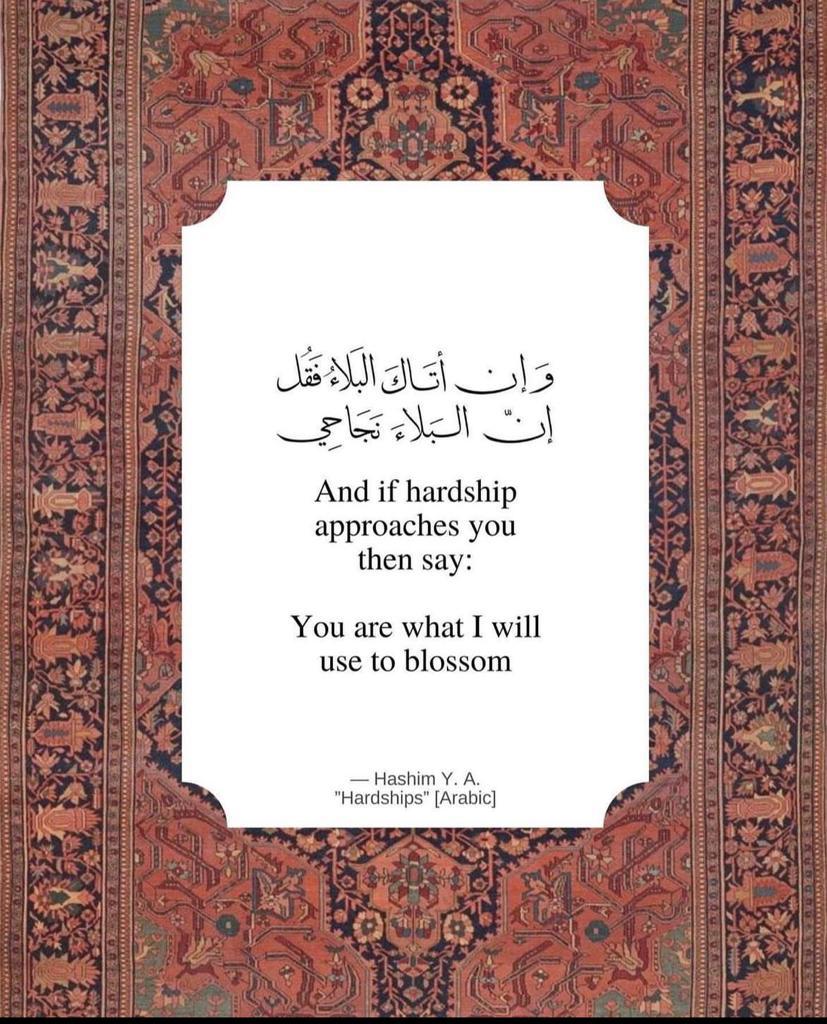 وَ إن أتَاكَ البَلَاءُ فَقُل
إنّ البَلاءَ نَجَاحِي
And if hardship
approaches you
then say:
You are what I will
use to blossom
— Hashim Y. A.
"Hardships" [Arabic]